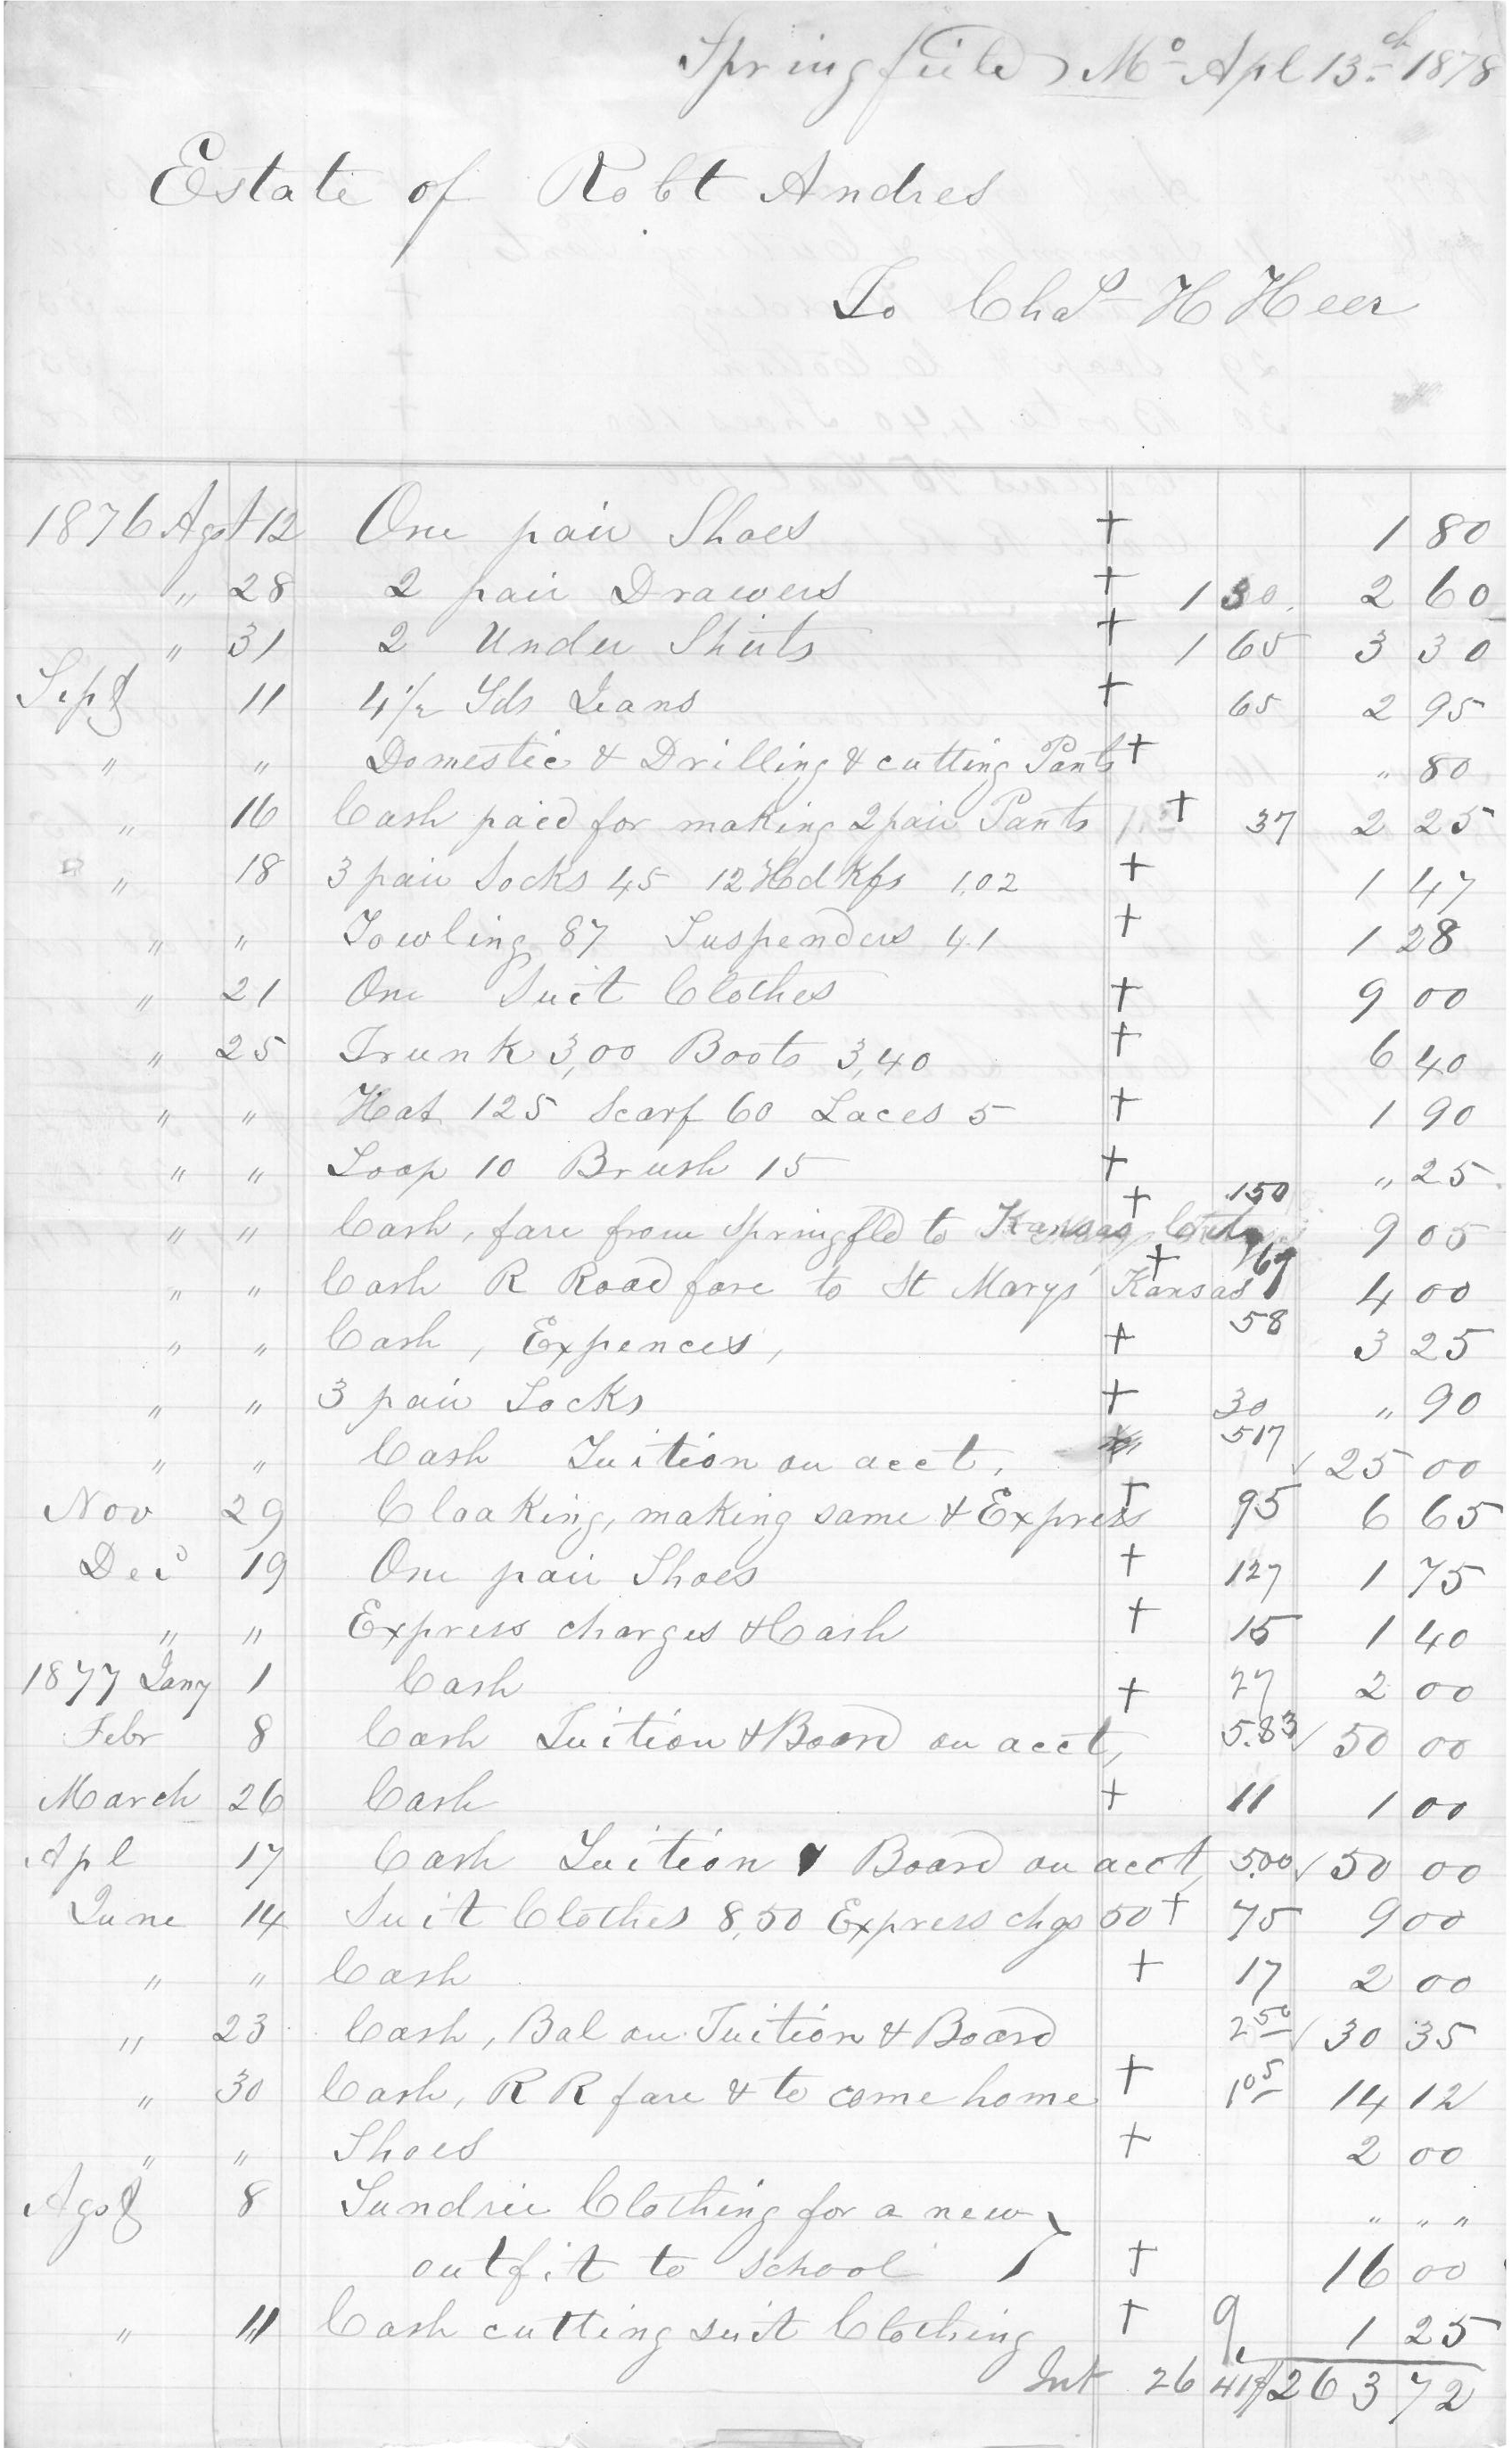 Springfield Mo Apl 13th 1878
Estate of Robt Andres
To Chas H Heer
1876 Agst 12 One pair Shoes + 1 80
" 28 2 pair Drawers + 1 30 2 60
" 31 2 Under Shirts + 1 65 3 30
Sept 11 4 1/2 Yds Jeans + 65 2 95
" " Domestic & Drilling & cutting Pants + " 80
" 16 Cash paid for making 2 pair Pants + 37 2 25
" 18 3 pair Socks 45 12 Hdkfs 1.02 + 1 47
" " Towling 87 Suspenders 41 + 1 28
" 21 One Suit Clothes + 9 00
" 25 Trunk 3,00 Boots 3,40 + 6 40
" " Hat 125 Scarf 60 Laces 5 + 1 90
" " Soap 10 Brush 15 + " 25
" " Cash, fare from Springfld to Kansas City + 150 9 05
" " Cash R Road fare to St Marys Kansas + 67 4 00
" " Cash, Expences, + 58 3 25
" " 3 pair Socks + 30 " 90
" " Cash Tuition on acct. 517 ✓ 25 00
Nov 29 Cloaking, making same & Express + 95 6 65
Dec 19 One pair Shoes + 127 1 75
" " Express charges & Cash + 15 1 40
1877 Jany 1 Cash + 27 2 00
Febr 8 Cash Tuition & Board on acct, 5.83 ✓ 50 00
March 26 Cash + 11 1 00
Apl 17 Cash Tuition & Board on acct 5.00 ✓ 50 00
June 14 Suit Clothes 8,50 Express chgs 50 + 75 9 00
" " Cash + 17 2 00
" 23 Cash, Bal on Tuition & Board 2 50 ✓ 30 35
" 30 Cash, R R fare & to come home + 1 05 14 12
" " Shoes + 2 00
Agst 8 Sundrie Clothing for a new " " "
outfit to school + 16 00
" 11 Cash cutting suit Clothing + 9 1 25
Int 26 41 263 72